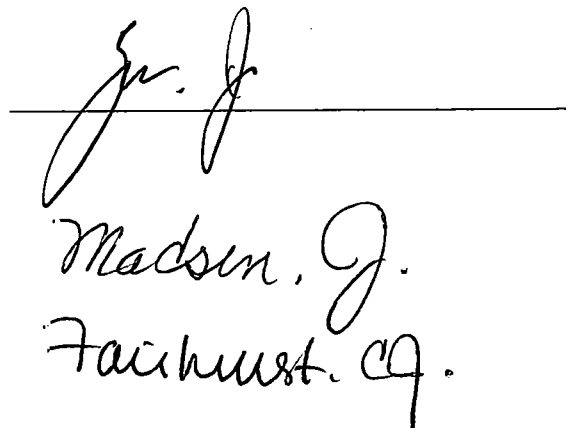 Yu, J
Madsen, J.
Fairhurst, CJ.